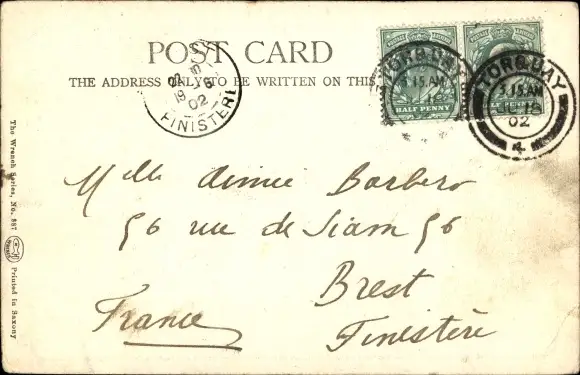 POST CARD
THE ADDRESS ONLY TO BE WRITTEN ON THIS
FINISTERE
02
TORQUAY
3.15 AM
02
4
HALF PENNY
HALF PENNY
Melle Aimée Barbero
56 rue de Siam 56
Brest
Finistère
France
The Wrench Series, No. 887
Printed in Saxony